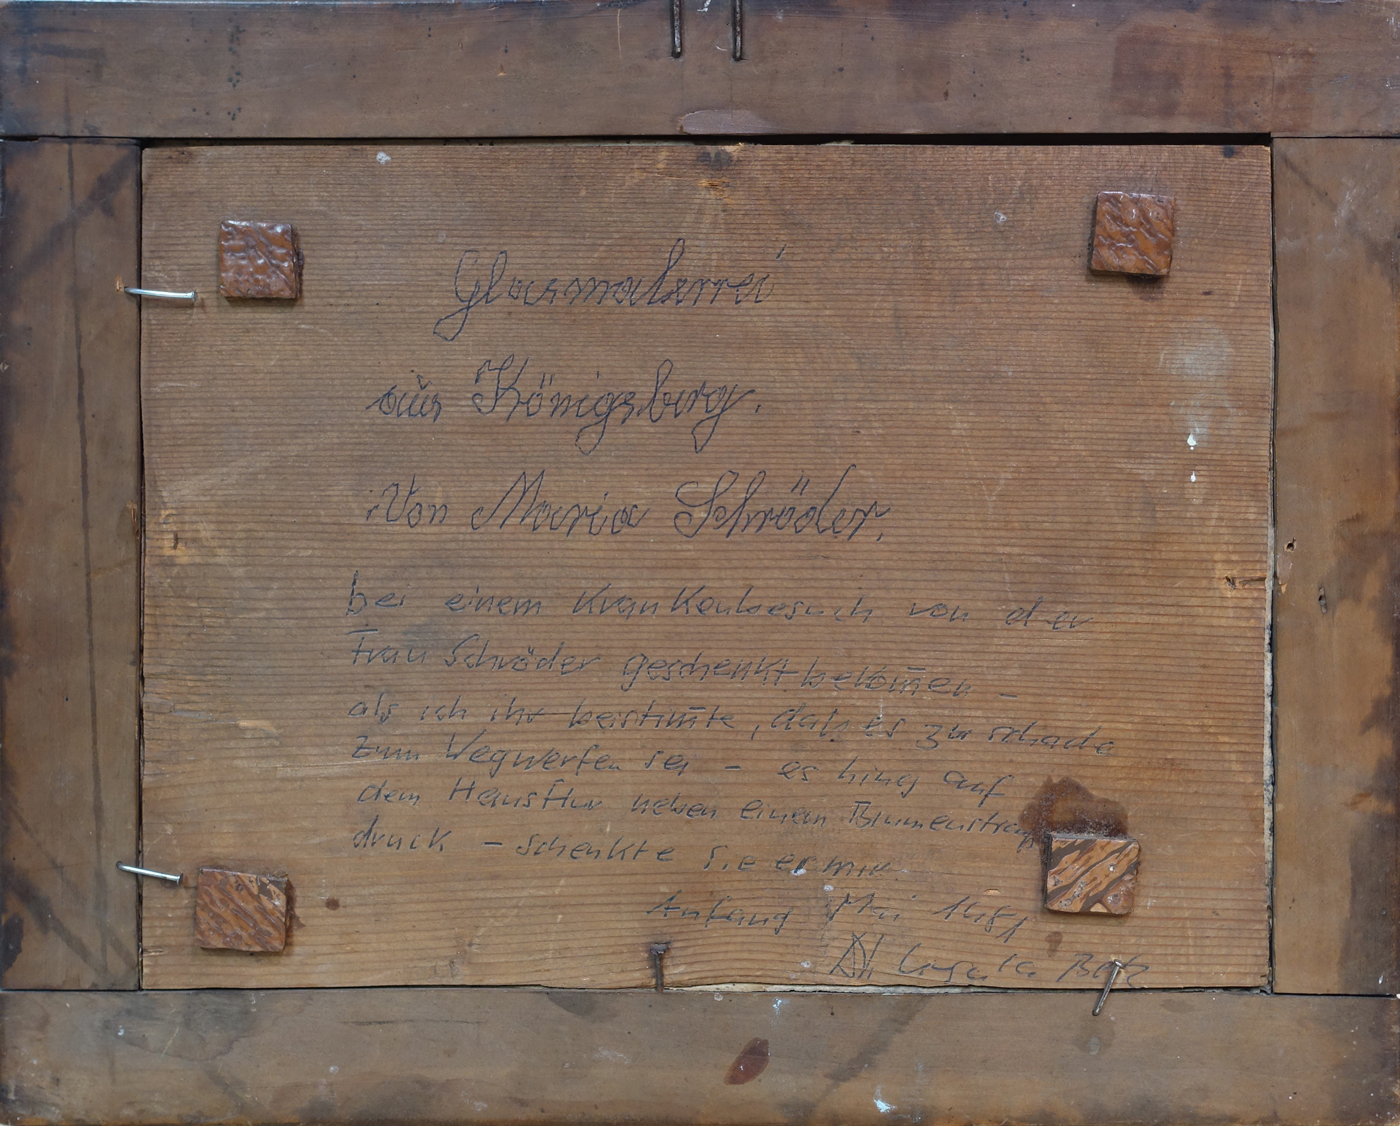 Glasmalerei
aus Königsberg.
Von Maria Schröder.
bei einem Krankenbesuch von der
Frau Schröder geschenkt bekom̄en –
als ich ihr beistim̄te, daß es zu schade
zum Wegwerfen sei – es hing auf
dem Hausflur neben einem Blumenstrauß
druck – schenkte sie es mir.
Anfang Mai 1981